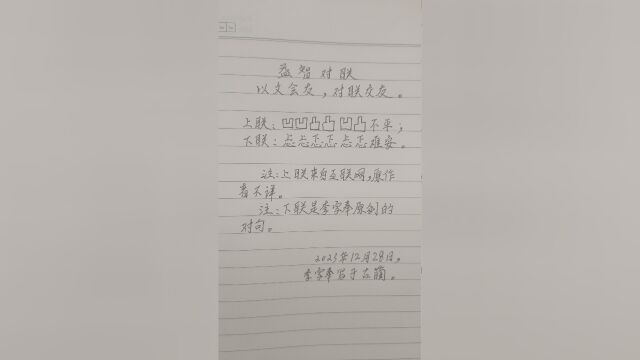 益智对联
以文会友，对联交友。
上联：凹凹凸凸 凹凸不平；
下联：忐忐忑忑 忐忑难安。
注：上联来自互联网，原作
者不详。
注：下联是李字奉原创的
对句。
2023年12月28日。
李字奉写于古蔺。